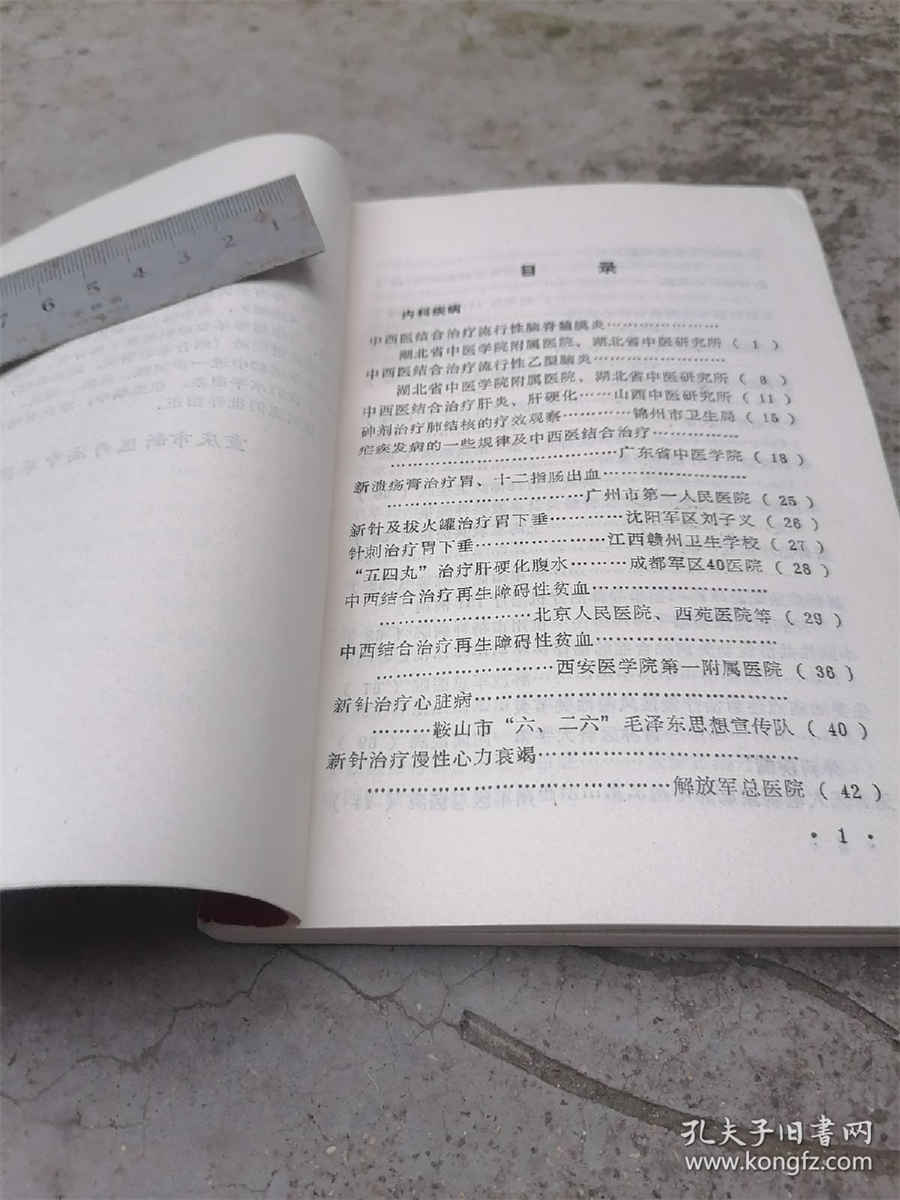 目 录
内科疾病
中西医结合治疗流行性脑脊髓膜炎………………
湖北省中医学院附属医院、湖北省中医研究所 ( 1 )
中西医结合治疗流行性乙型脑炎………………
湖北省中医学院附属医院、湖北省中医研究所 ( 8 )
中西医结合治疗肝炎、肝硬化……山西中医研究所 ( 11 )
砷剂治疗肺结核的疗效观察…………锦州市卫生局 ( 15 )
疟疾发病的一些规律及中西医结合治疗…………
………………………………广东省中医学院 ( 18 )
新溃疡膏治疗胃、十二指肠出血…………………
……………………………广州市第一人民医院 ( 25 )
新针及拔火罐治疗胃下垂…………沈阳军区刘子义 ( 26 )
针刺治疗胃下垂…………………江西赣州卫生学校 ( 27 )
“五四丸”治疗肝硬化腹水………成都军区40医院 ( 28 )
中西结合治疗再生障碍性贫血……………………
……………………北京人民医院、西苑医院等 ( 29 )
中西结合治疗再生障碍性贫血……………………
………………………西安医学院第一附属医院 ( 36 )
新针治疗心脏病……………………………………
………鞍山市“六、二六”毛泽东思想宣传队 ( 40 )
新针治疗慢性心力衰竭……………………………
……………………………………解放军总医院 ( 42 )
• 1 •
7 6 5 4 3 2 1
孔夫子旧书网
www.kongfz.com